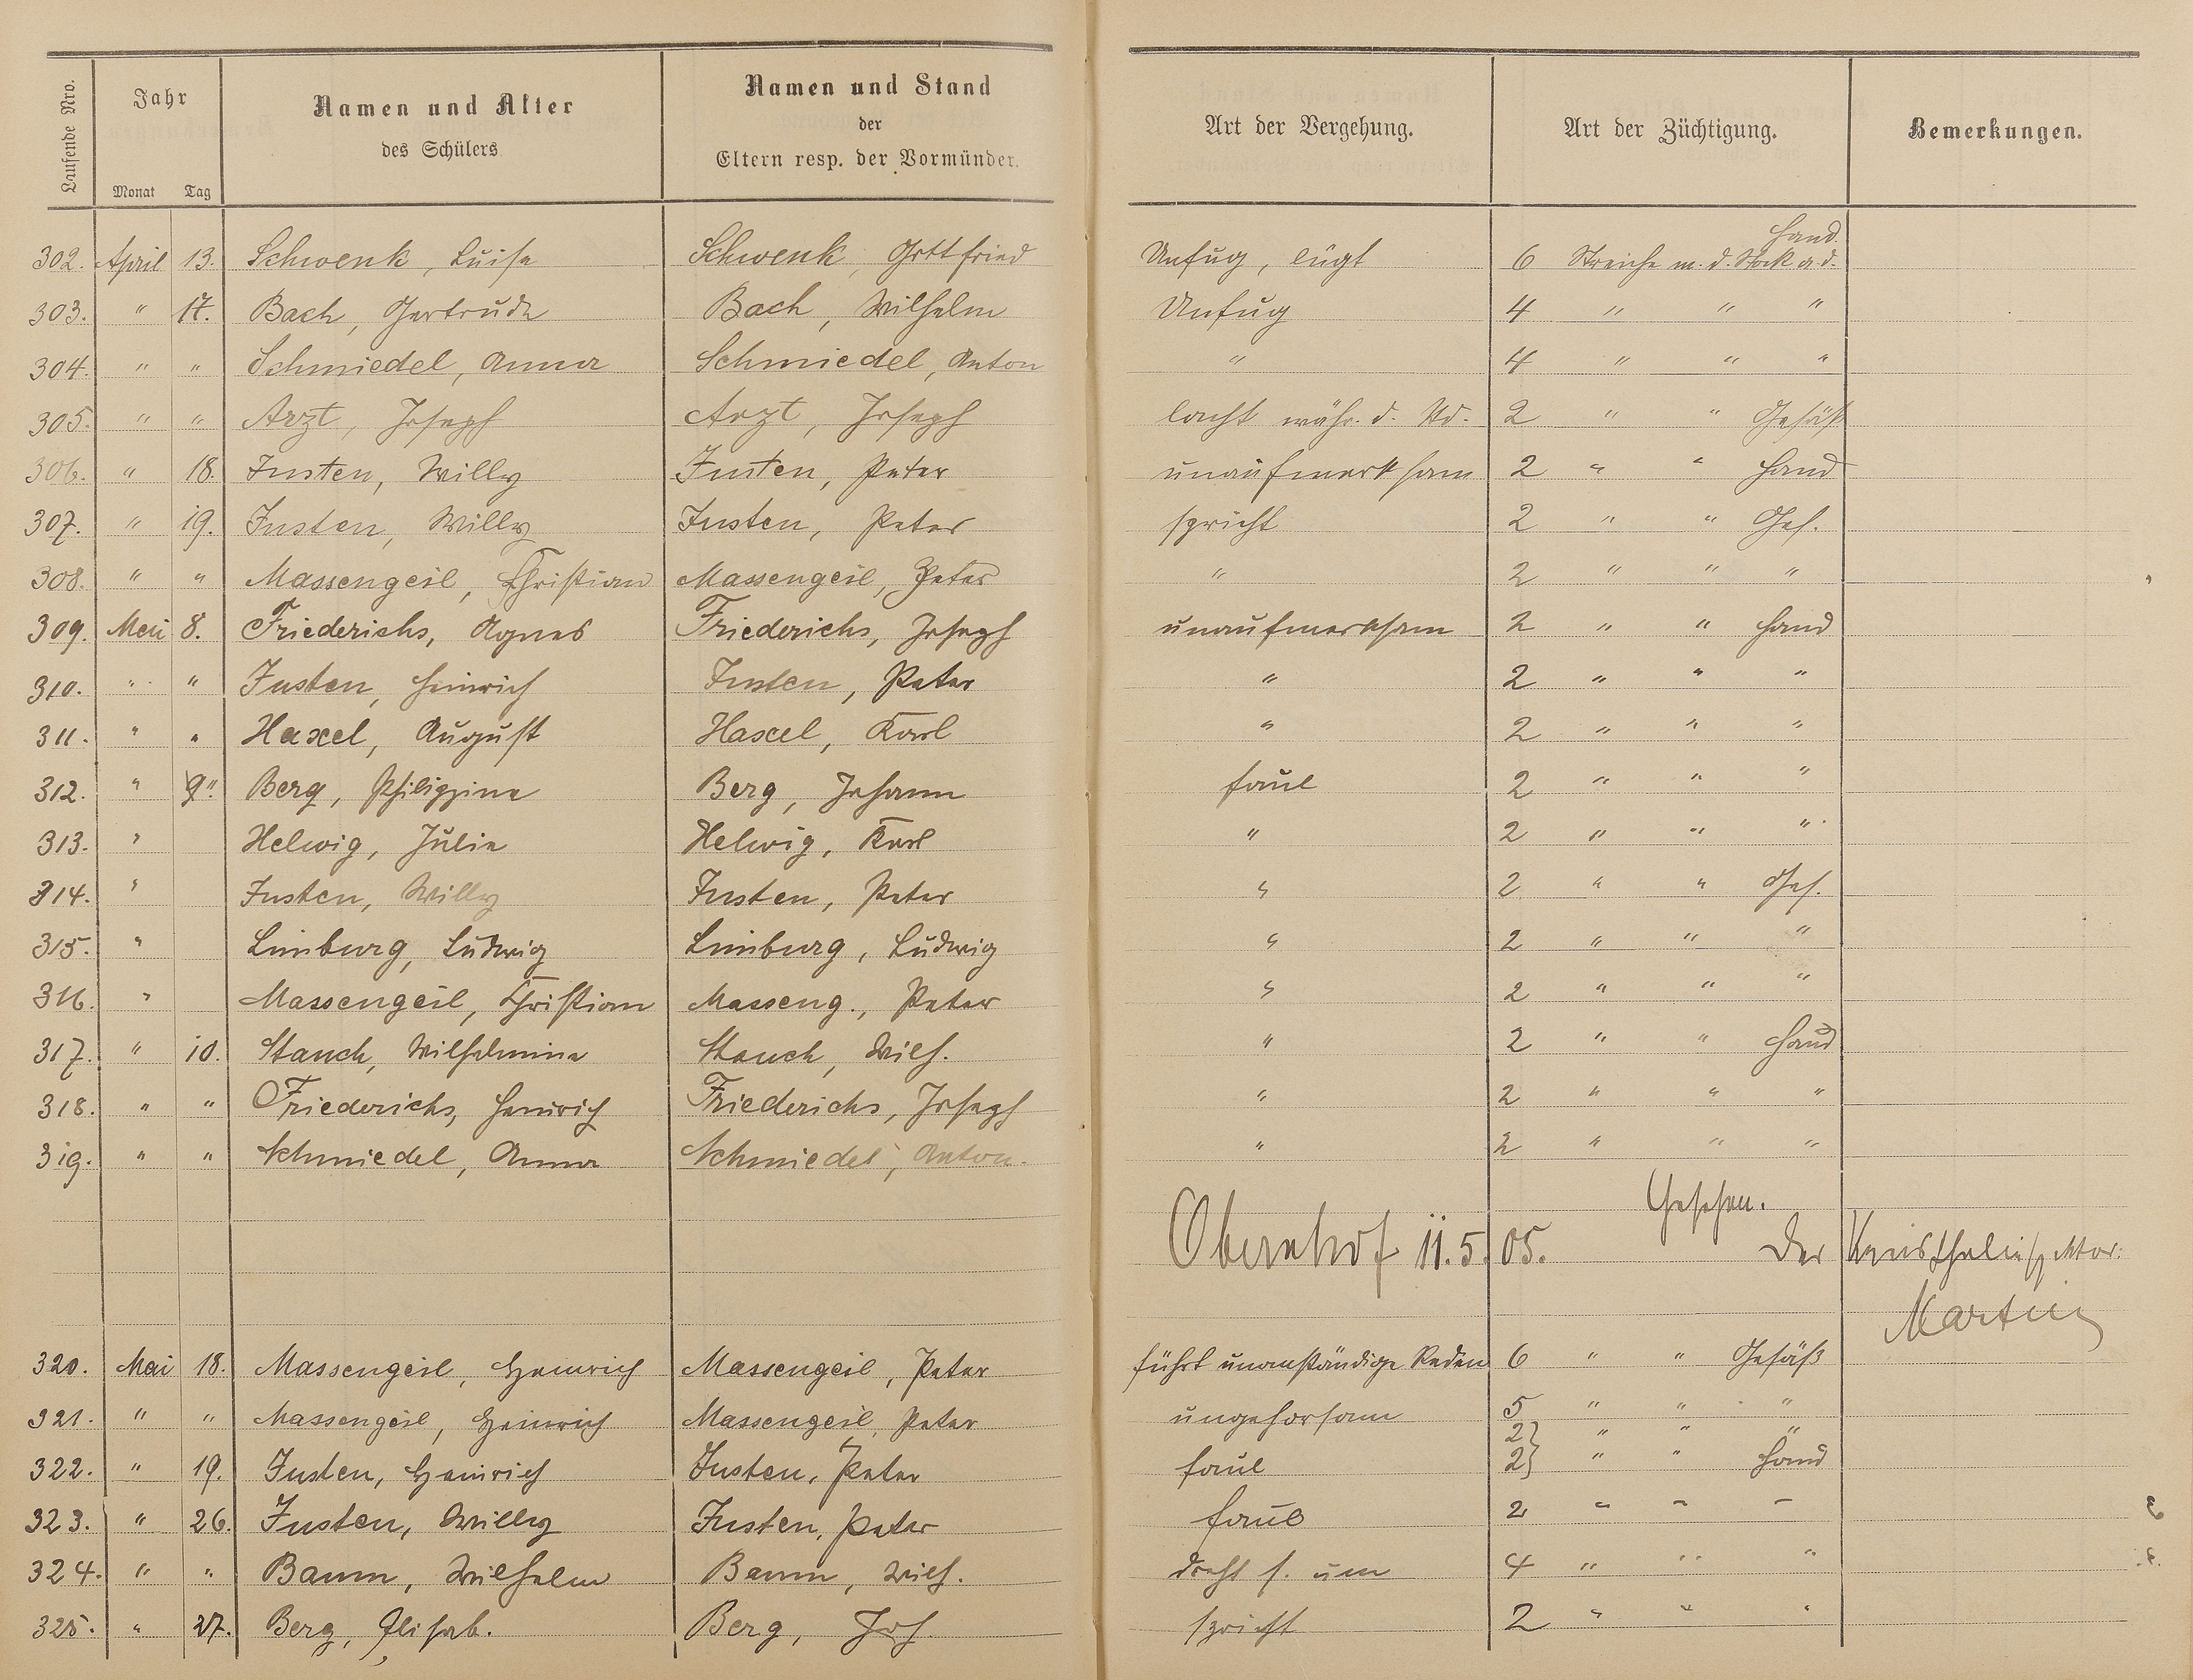 Laufende Nro. | Jahr | Namen und Alter des Schülers | Namen und Stand der Eltern resp. der Vormünder. | Art der Vergehung. | Art der Züchtigung. | Bemerkungen.
Monat Tag
302. April 13. Schwenk, Luise Schwenk, Gottfried Unfug, lügt 6 Streiche m. d. Stock a. d. Hand.
303. " 17. Bach, Gertrude Bach, Wilhelm Unfug 4 " " "
304. " " Schmiedel, Anna Schmiedel, Anton " 4 " " "
305. " " Arzt, Joseph Arzt, Joseph lacht währ. d. Std. 2 " " Gesäß
306. " 18. Justen, Willy Justen, Peter unaufmerksam 2 " " Hand
307. " 19. Justen, Willy Justen, Peter spricht 2 " " Ges.
308. " " Massengeil, Christian Massengeil, Peter " 2 " " "
309. Mai 8. Friederichs, Agnes Friederichs, Joseph unaufmerksam 2 " " Hand
310. " " Justen, Heinrich Justen, Peter " 2 " " "
311. " " Haxel, August Haxel, Karl " 2 " " "
312. " 9. " Berg, Philippine Berg, Johann faul 2 " " "
313. " Helwig, Julie Helwig, Karl " 2 " " "
314. " Justen, Willy Justen, Peter " 2 " " Ges.
315. " Limburg, Ludwig Limburg, Ludwig " 2 " " "
316. " Massengeil, Christian Masseng., Peter " 2 " " "
317. " 10. Stauch, Wilhelmine Stauch, Wilh. " 2 " " Hand
318. " " Friederichs, Heinrich Friederichs, Joseph " 2 " " "
319. " " Schmiedel, Anna Schmiedel, Anton. " 2 " " "
Gesehen.
Obernhof 11.5.05. Der Kreisschulinspektor.
Martin
320. Mai 18. Massengeil, Heinrich Massengeil, Peter führt unanständige Reden 6 " " Gesäß
321. " " Massengeil, Heinrich Massengeil, Peter ungehorsam 5 " " "
2} " " "
322. " 19. Justen, Heinrich Justen, Peter faul 2} " " Hand
323. " 26. Justen, Willy Justen, Peter faul 2 " " "
324. " " Baum, Wilhelm Baum, Wilh. dreht s. um 4 " " "
325. " 27. Berg, Elisab. Berg, Joh. spricht 2 " " "